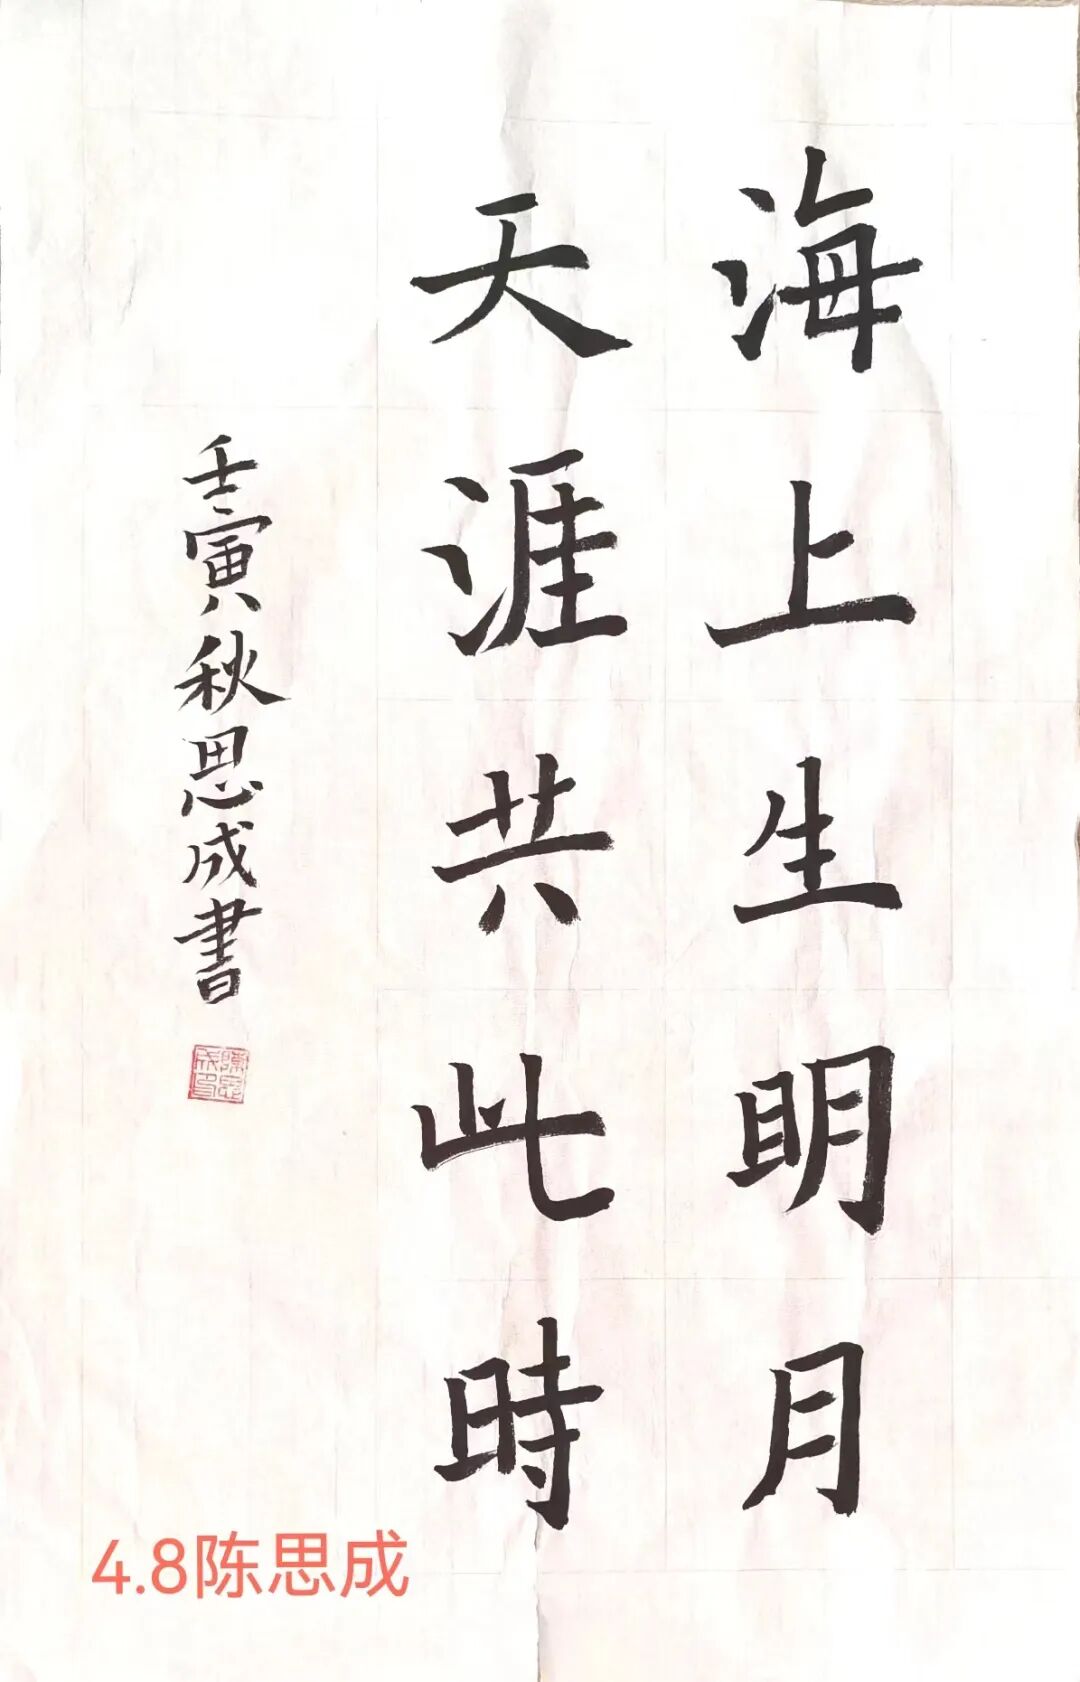 海上生明月
天涯共此時
壬寅秋思成書
陳思成印
4.8陈思成